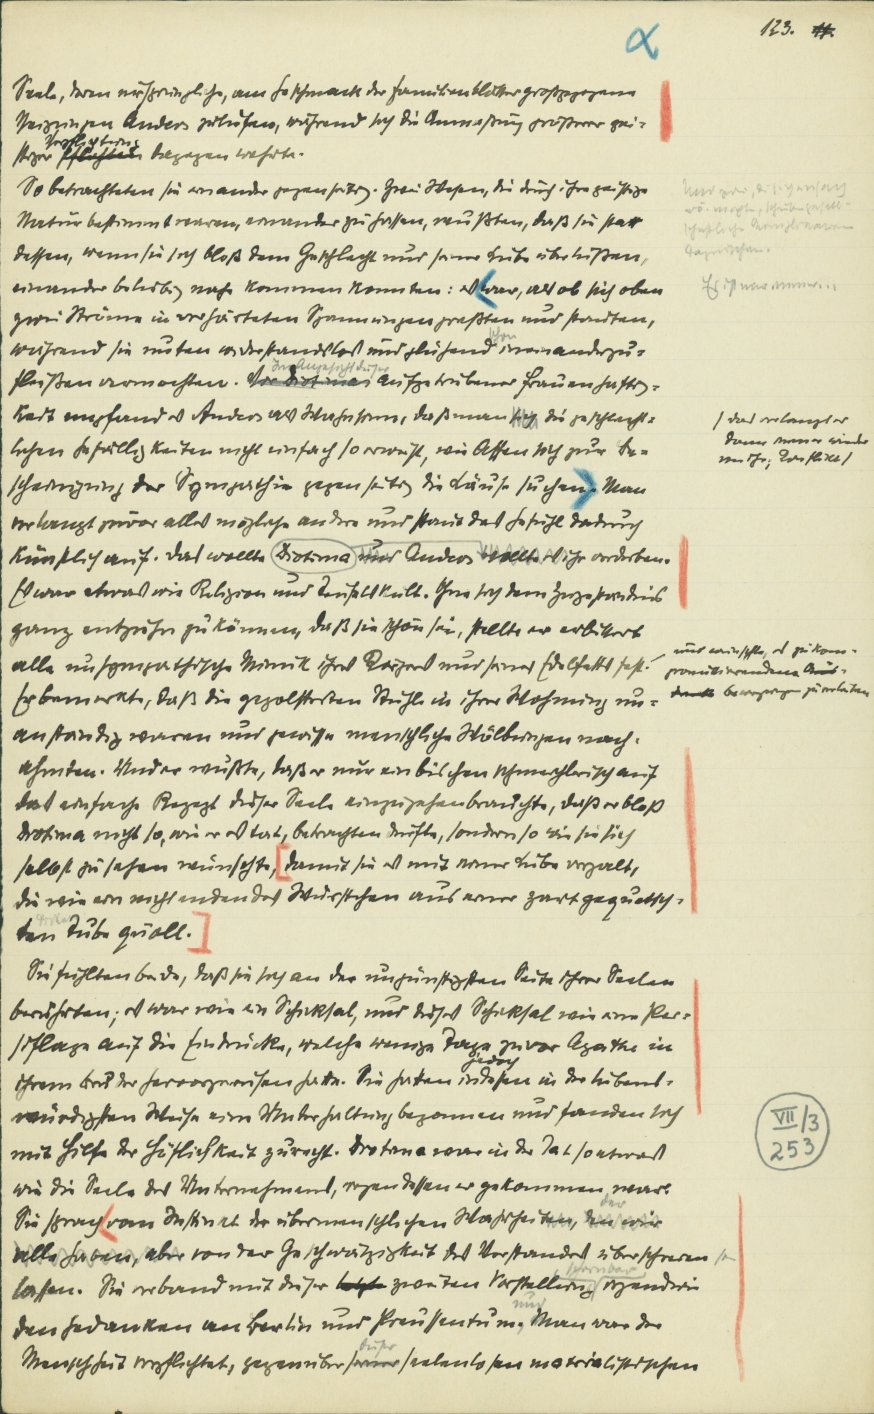 α
123.
Seele, deren ursprüngliche, am Geschmack der Familienblätter großgezogene
Neigungen Anders zuliefen, während sich die Anmaßung größerer gei-
stiger Verpflichtung dagegen wehrte.
So betrachteten sie einander gegenseitig. Zwei Wesen, die durch ihre geistige
Natur bestimmt waren, einander zu hassen, wußten, daß sie statt
dessen, wenn sie sich bloß dem Geschlecht und seiner Liebe überließen,
einander beliebig nahe kommen konnten: es war, als ob sich oben
zwei Ströme in verhärteten Spannungen preßten und stauten,
während sie unten widerstandslos und glühend ineinanderzu-
fließen vermochten. Im Angesicht dieser aufgetriebener Frauenhaftig-
keit empfand es Anders als Wahnsinn, daß man sich die geschlecht-
lichen Gefälligkeiten nicht einfach so erweist, wie Affen sich zur Be-
scheinigung der Sympathie gegenseitig die Läuse suchen. Man
verlangt zuvor alles mögliche andere und staut das Gefühl dadurch
künstlich auf. Das wollte Diotima und Anders wollte es ihr verderben.
Es war etwas wie Religion und Teufelskult. Ohne sich dem Zugeständnis
ganz entziehn zu können, daß sie schön sei, stellte er erbittert
alle unsympathische Mimik ihres Körpers und seines Edelfetts fest.
Er bemerkte, daß die gepolsterten Stühle in ihrer Wohnung un-
anständig waren und gewisse menschliche Wölbungen nach-
ahmten. Und er wußte, daß er nur ein bischen schmeichlerisch auf
das einfache Rezept dieser Seele einzugehen brauchte, daß er bloß
Diotima nicht so, wie er es tat, betrachten dürfte, sondern so wie sie sich
selbst zu sehen wünschte, [damit sie es mit einer Liebe vergalt,
die wie ein nicht endendes Würstchen aus einer zart gequetsch-
ten Tube quoll.]
Sie fühlten beide, daß sie sich an der ungünstigsten Seite ihrer Seelen
berührten; es war wie ein Schicksal, und dieses Schicksal wie eine Per-
siflage auf die Eindrücke, welche wenige Tage zuvor Agathe in
ihrem Bruder hervorgerufen hatte. Sie hatten jedoch in der liebens-
würdigsten Weise eine Unterhaltung begonnen und fanden sich
mit Hilfe der Höflichkeit zurecht. Diotima war in der Tat so etwas
wie die Seele des Unternehmens, wegen dessen er gekommen war.
Sie sprach vom Instinkt der übermenschlichen Wahrheiten, den wir
alle haben, aber von der Geschwätzigkeit des Verstandes überschreien
lassen. Sie verband mit dieser zweiten Vorstellung irgendwie
den Gedanken an Berlin und Preussentum. Man war der
Menschheit verpflichtet, gegenüber dieser seelenlosen materialistischen
Es ist nur immer
/ das verlangt er
dann immer wieder
Konflikt /
und wünschte, es zu kom-
promittierendem
VII/3
253